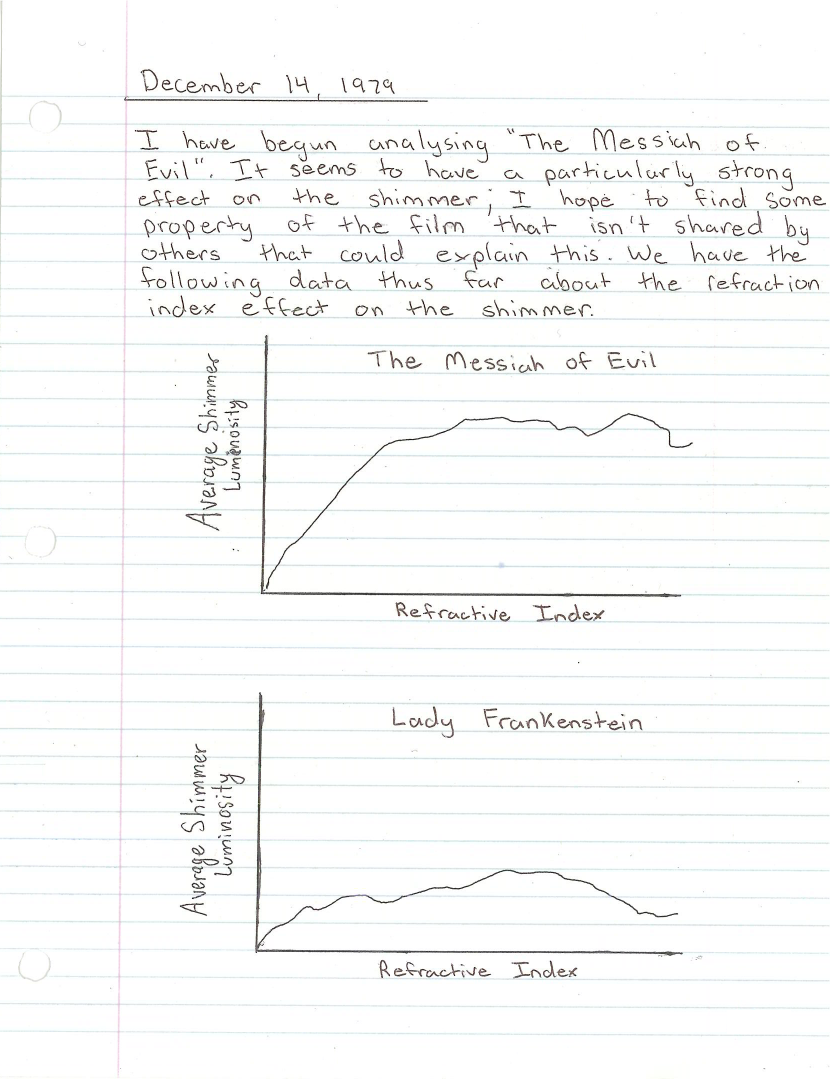 December 14, 1979
I have begun analysing "The Messiah of
Evil". It seems to have a particularly strong
effect on the shimmer; I hope to find some
property of the film that isn't shared by
others that could explain this. We have the
following data thus far about the refraction
index effect on the shimmer.
The Messiah of Evil
Average Shimmer
Luminosity
Refractive Index
Lady Frankenstein
Average Shimmer
Luminosity
Refractive Index